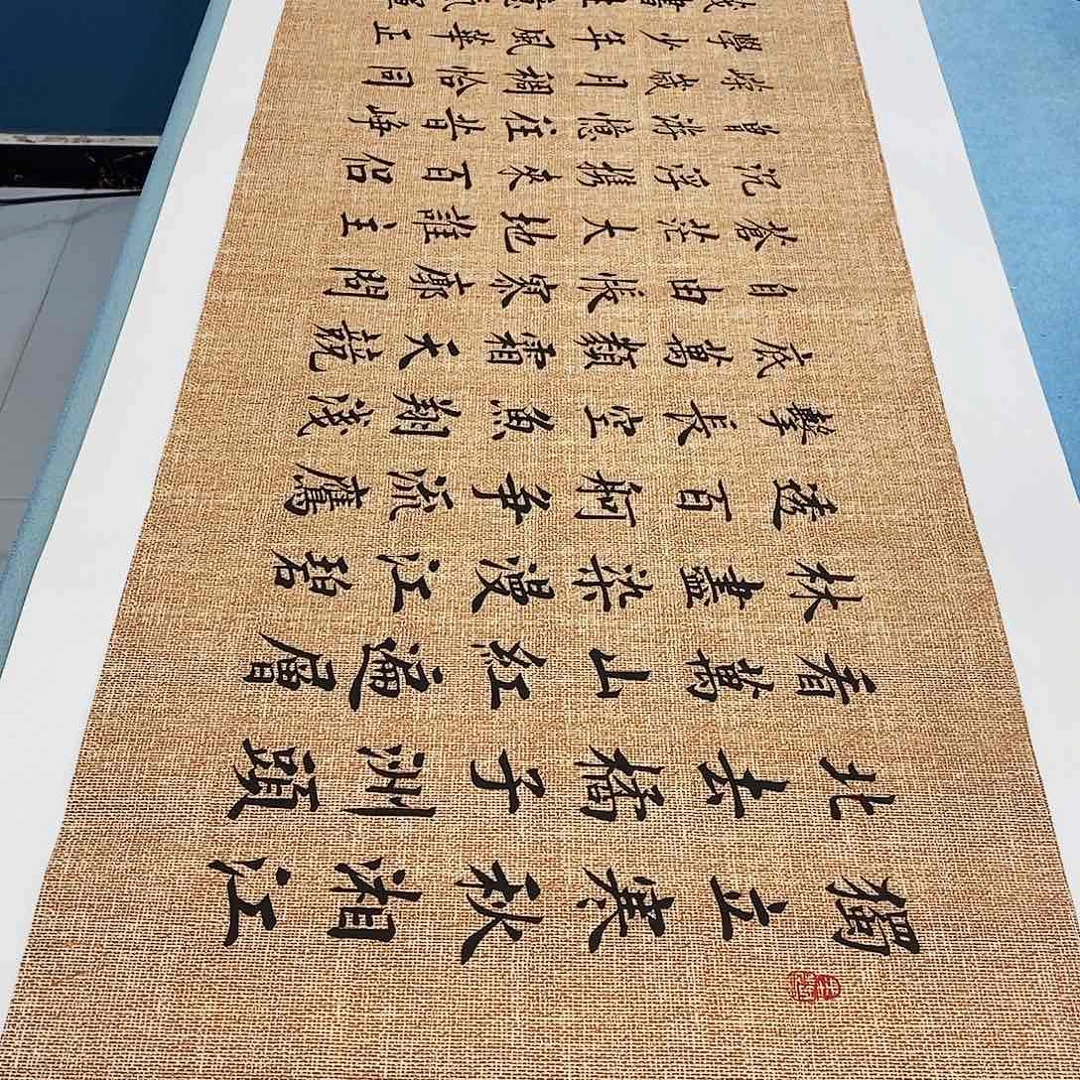 獨立寒秋湘江
北去橘子洲頭
看萬山紅遍層
林盡染漫江碧
透百舸争流鷹
擊長空魚翔淺
底萬類霜天競
自由悵寥廓問
蒼茫大地誰主
沉浮携来百侣
曾游憶往昔崢
嶸歲月稠恰同
學少年風華正
茂書生意氣